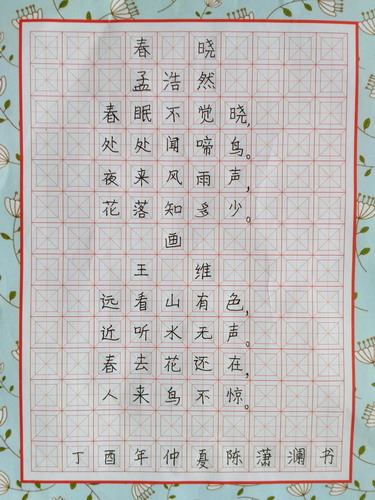 春晓
孟浩然
春眠不觉晓,
处处闻啼鸟。
夜来风雨声,
花落知多少。
画
王维
远看山有色,
近听水无声。
春去花还在,
人来鸟不惊。
丁酉年仲夏陈潇澜书